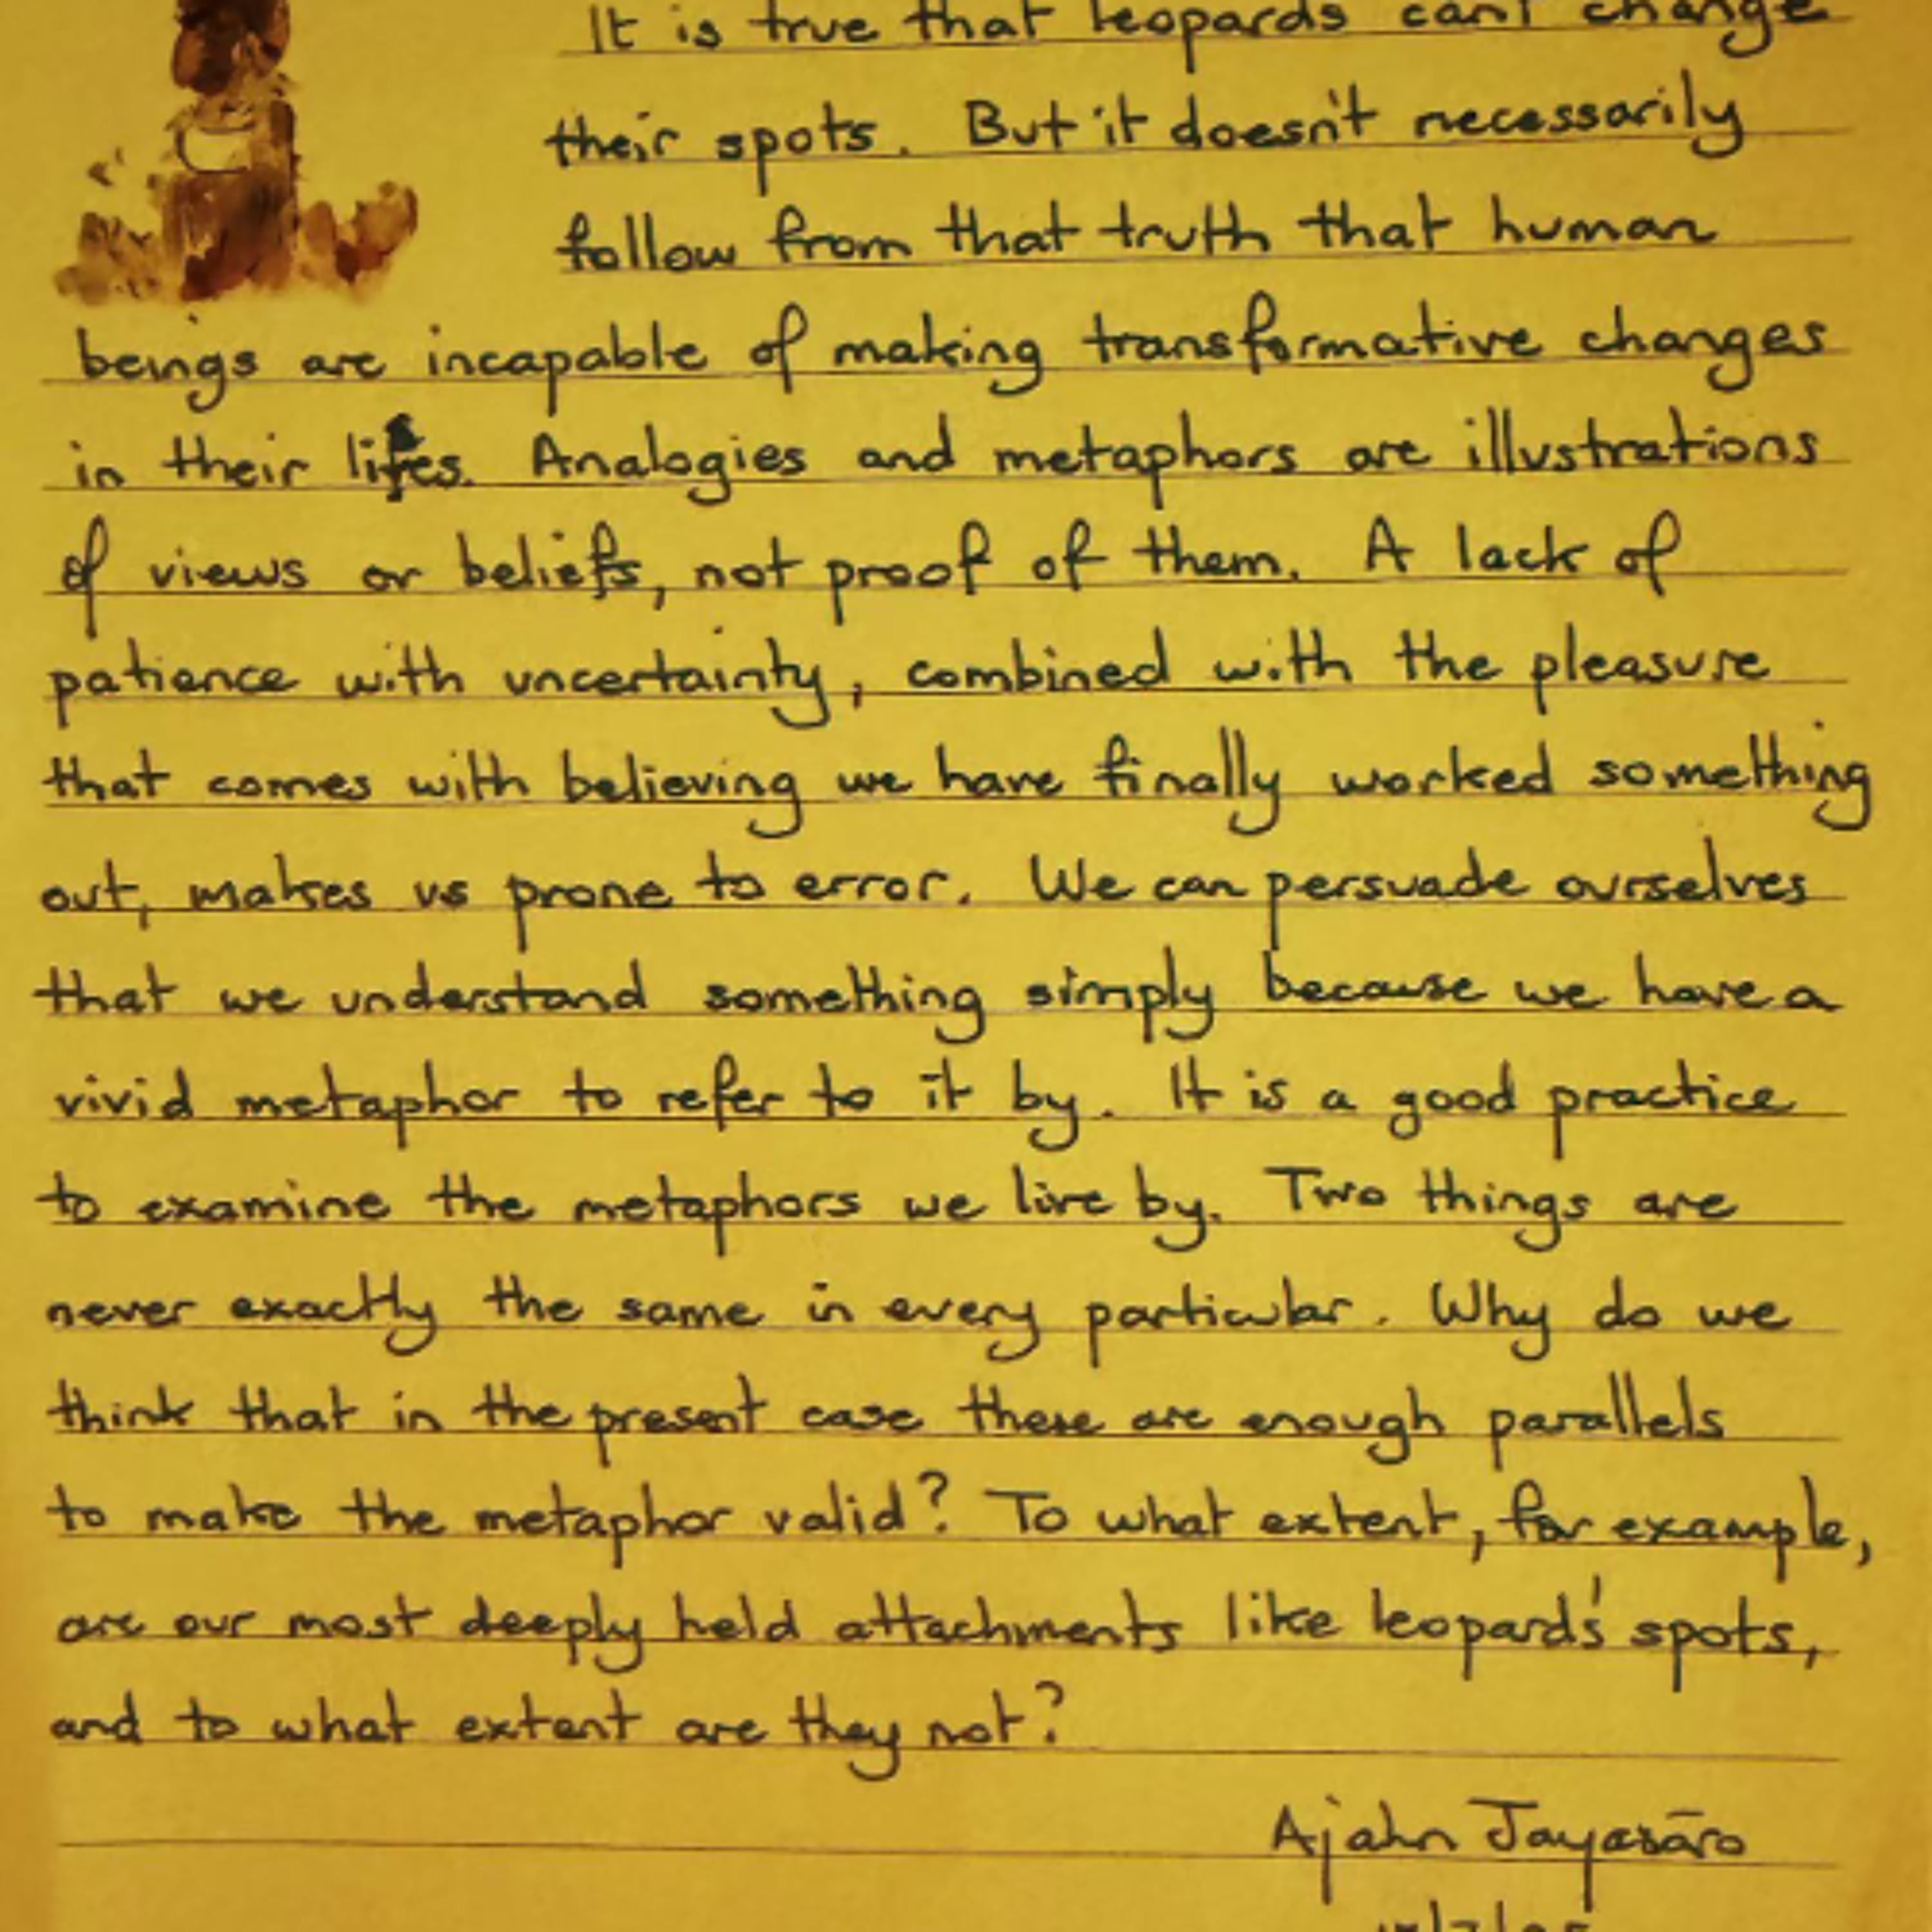 It is true that leopards can't change
their spots. But it doesn't necessarily
follow from that truth that human
beings are incapable of making transformative changes
in their lifes. Analogies and metaphors are illustrations
of views or beliefs, not proof of them. A lack of
patience with uncertainty, combined with the pleasure
that comes with believing we have finally worked something
out, makes us prone to error. We can persuade ourselves
that we understand something simply because we have a
vivid metaphor to refer to it by. It is a good practice
to examine the metaphors we live by. Two things are
never exactly the same in every particular. Why do we
think that in the present case these are enough parallels
to make the metaphor valid? To what extent, for example,
are our most deeply held attachments like leopard's spots,
and to what extent are they not?
Ajahn Jayasāro